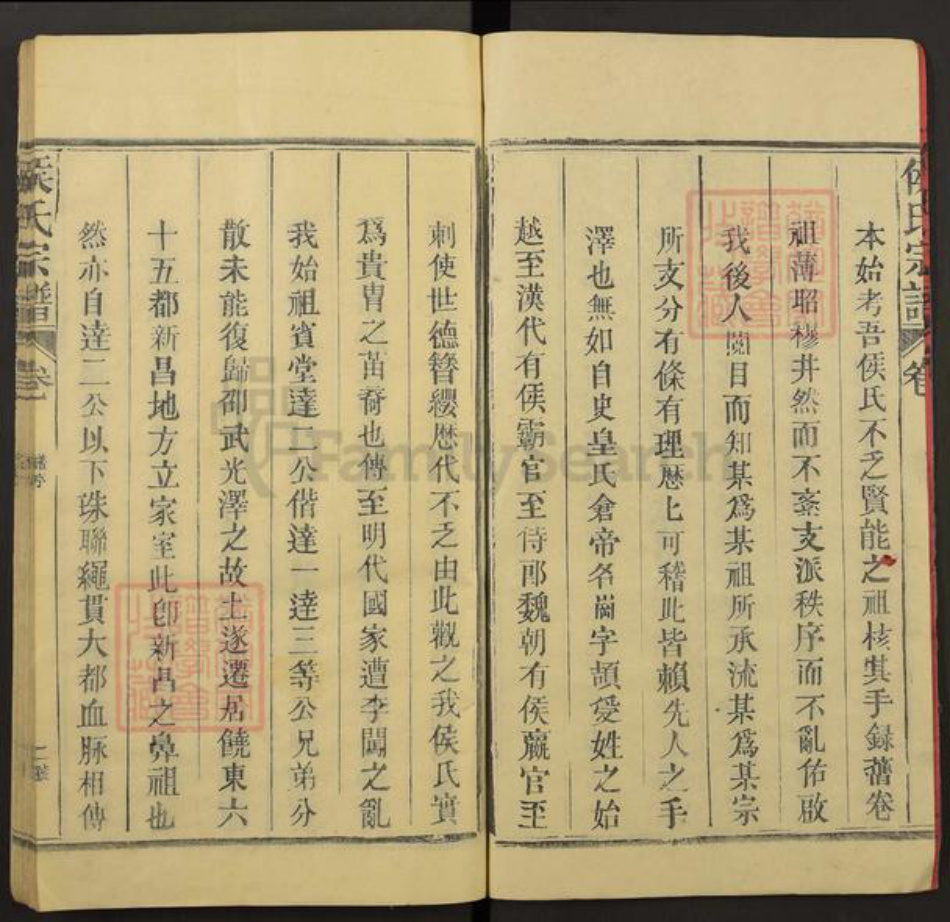 侯氏宗譜 卷
本始考吾侯氏不乏賢能之祖核其手録舊卷
祖薄昭穆井然而不紊支派秩序而不亂佑啟
我後人閲目而知某爲某祖所承流某爲某宗
所支分有條有理歴匕可稽此皆賴先人之手
澤也無如自史皇氏倉帝名崗字頡受姓之始
越至漢代有侯霸官至侍郎魏朝有侯贏官至
刺使世德簪纓歴代不乏由此觀之我侯氏實
爲貴胄之苗裔也傳至明代國家遭李闖之亂
我始祖賓堂達二公偕達一達三等公兄弟分
散未能復歸邵武光澤之故土遂遷居饒東六
十五都新昌地方立家室此卽新昌之鼻祖也
然亦自達二公以下珠聯繩貫大都血脉相傳
侯氏宗譜 卷
二
FamilySearch